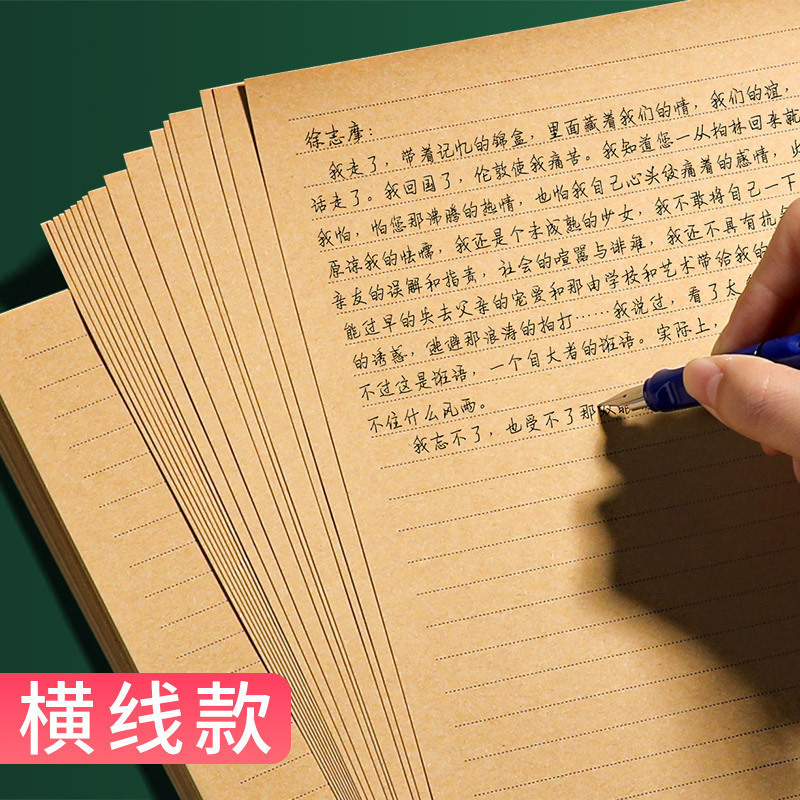 徐志摩：
我走了，带着记忆的锦盒，里面藏着我们的情，我们的谊，
话走了。我回国了，伦敦使我痛苦。我知道您一从柏林回来就
我怕，怕您那沸腾的热情，也怕我自己心头绞痛着的感情，此
原谅我的怯懦，我还是个未成熟的少女，我不敢将自己一下
亲友的误解和指责，社会的喧嚣与诽难，我还不具有抗
能过早的失去父亲的宠爱和那由学校和艺术带给我的
的诱惑，逃避那浪涛的拍打……我说过，看了太
不过这是诳语，一个自大者的诳语。实际上，
不住什么风雨。
我忘不了，也受不了那
横线款